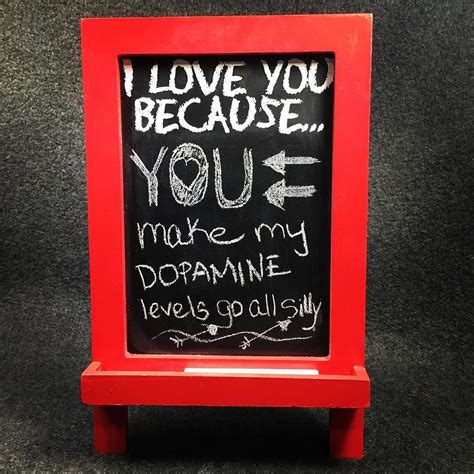 I LOVE YOU
BECAUSE...
YOU
make my
DOPAMINE
levels go all silly